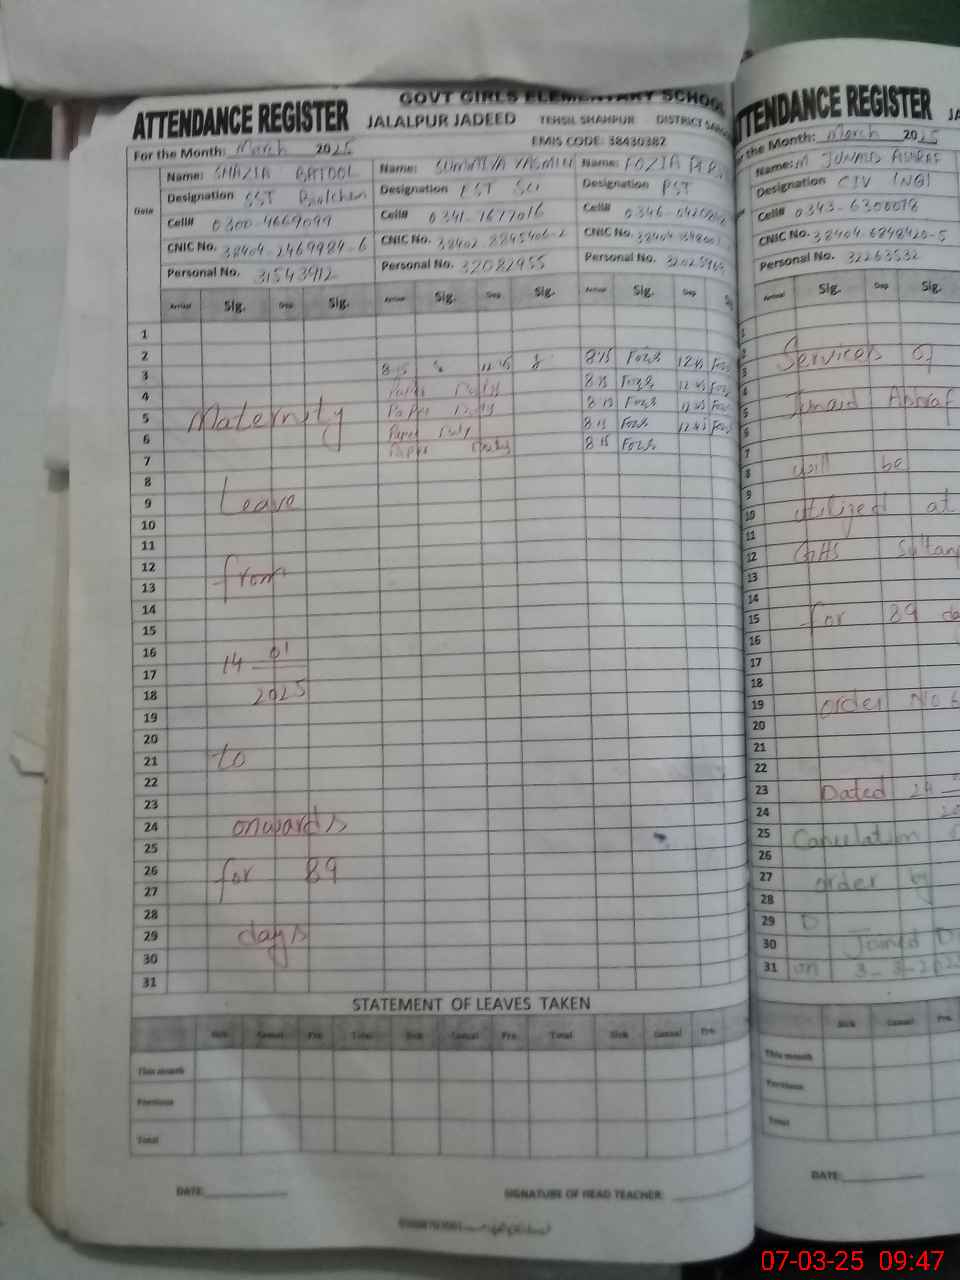 GOVT GIRLS ELEMENTARY SCHOOL
ATTENDANCE REGISTER JALALPUR JADEED TEHSIL SHAHPUR DISTRICT
EMIS CODE: 38430382
For the Month: March 2025
Name: SHAZIA BATOOL Name: SUMMIYA YASMIN Name: FOZIA
Designation SST Designation PST Designation PST
Date
Cell# 0300-4669099 Cell# 0341-7677016 Cell# 0346-
CNIC No. 38404-2469984-6 CNIC No. 38402-8845406-2 CNIC No. 38404-
Personal No. 31543912 Personal No. 32082955 Personal No.
Arrival Sig. Dep Sig. Arrival Sig. Dep Sig. Arrival Sig. Dep
1
2
3 8:15 12:45 8:15 Fozia 12:45
4 Paper Duty 8:15 Fozia 12:45
5 Maternity Paper Duty 8:15 Fozia 12:45
6 Paper Duty 8:15 Fozia 12:45
7 Paper Duty 8:15 Fozia
8
9 Leave
10
11
12
13 from
14
15
16 01
17 14
18 2025
19
20
21 to
22
23
24 onwards
25
26 for 89
27
28
29 days
30
31
STATEMENT OF LEAVES TAKEN
Sick Casual Pre. Total Sick Casual Pre. Total Sick Casual Pre.
This month
Previous
Total
DATE: SIGNATURE OF HEAD TEACHER:
ATTENDANCE REGISTER
For the Month: March 2025
Name: M JUNAID ASHRAF
Designation C IV (NQ)
Cell# 0343-6300078
CNIC No. 38404-6848420-5
Personal No. 32263532
Arrival Sig. Dep Sig.
1
2 Services of
3
4
5 Junaid Ashraf
6
7
8 will be
9
10 utilized at
11
12 GHS
13
14
15 for 89
16
17
18
19 order No
20
21
22
23 Dated 24
24
25 Cancelation
26
27 order by
28
29 D
30 Joined
31 on 3-3-2025
Sick Casual Pre.
This month
Previous
Total
DATE:
07-03-25 09:47